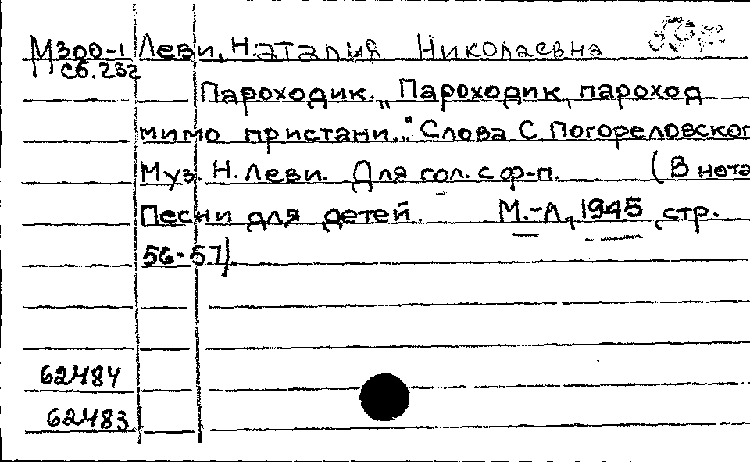 М300-1 Леви, Наталия Николаевна
сб.232
Пароходик. „Пароходик, пароход
мимо пристани..." Слова С. Погореловског
Муз. Н. Леви. Для гол. с ф-п. (В нота
Песни для детей. М.-Л, 1945, стр.
56-57).
62484
62483